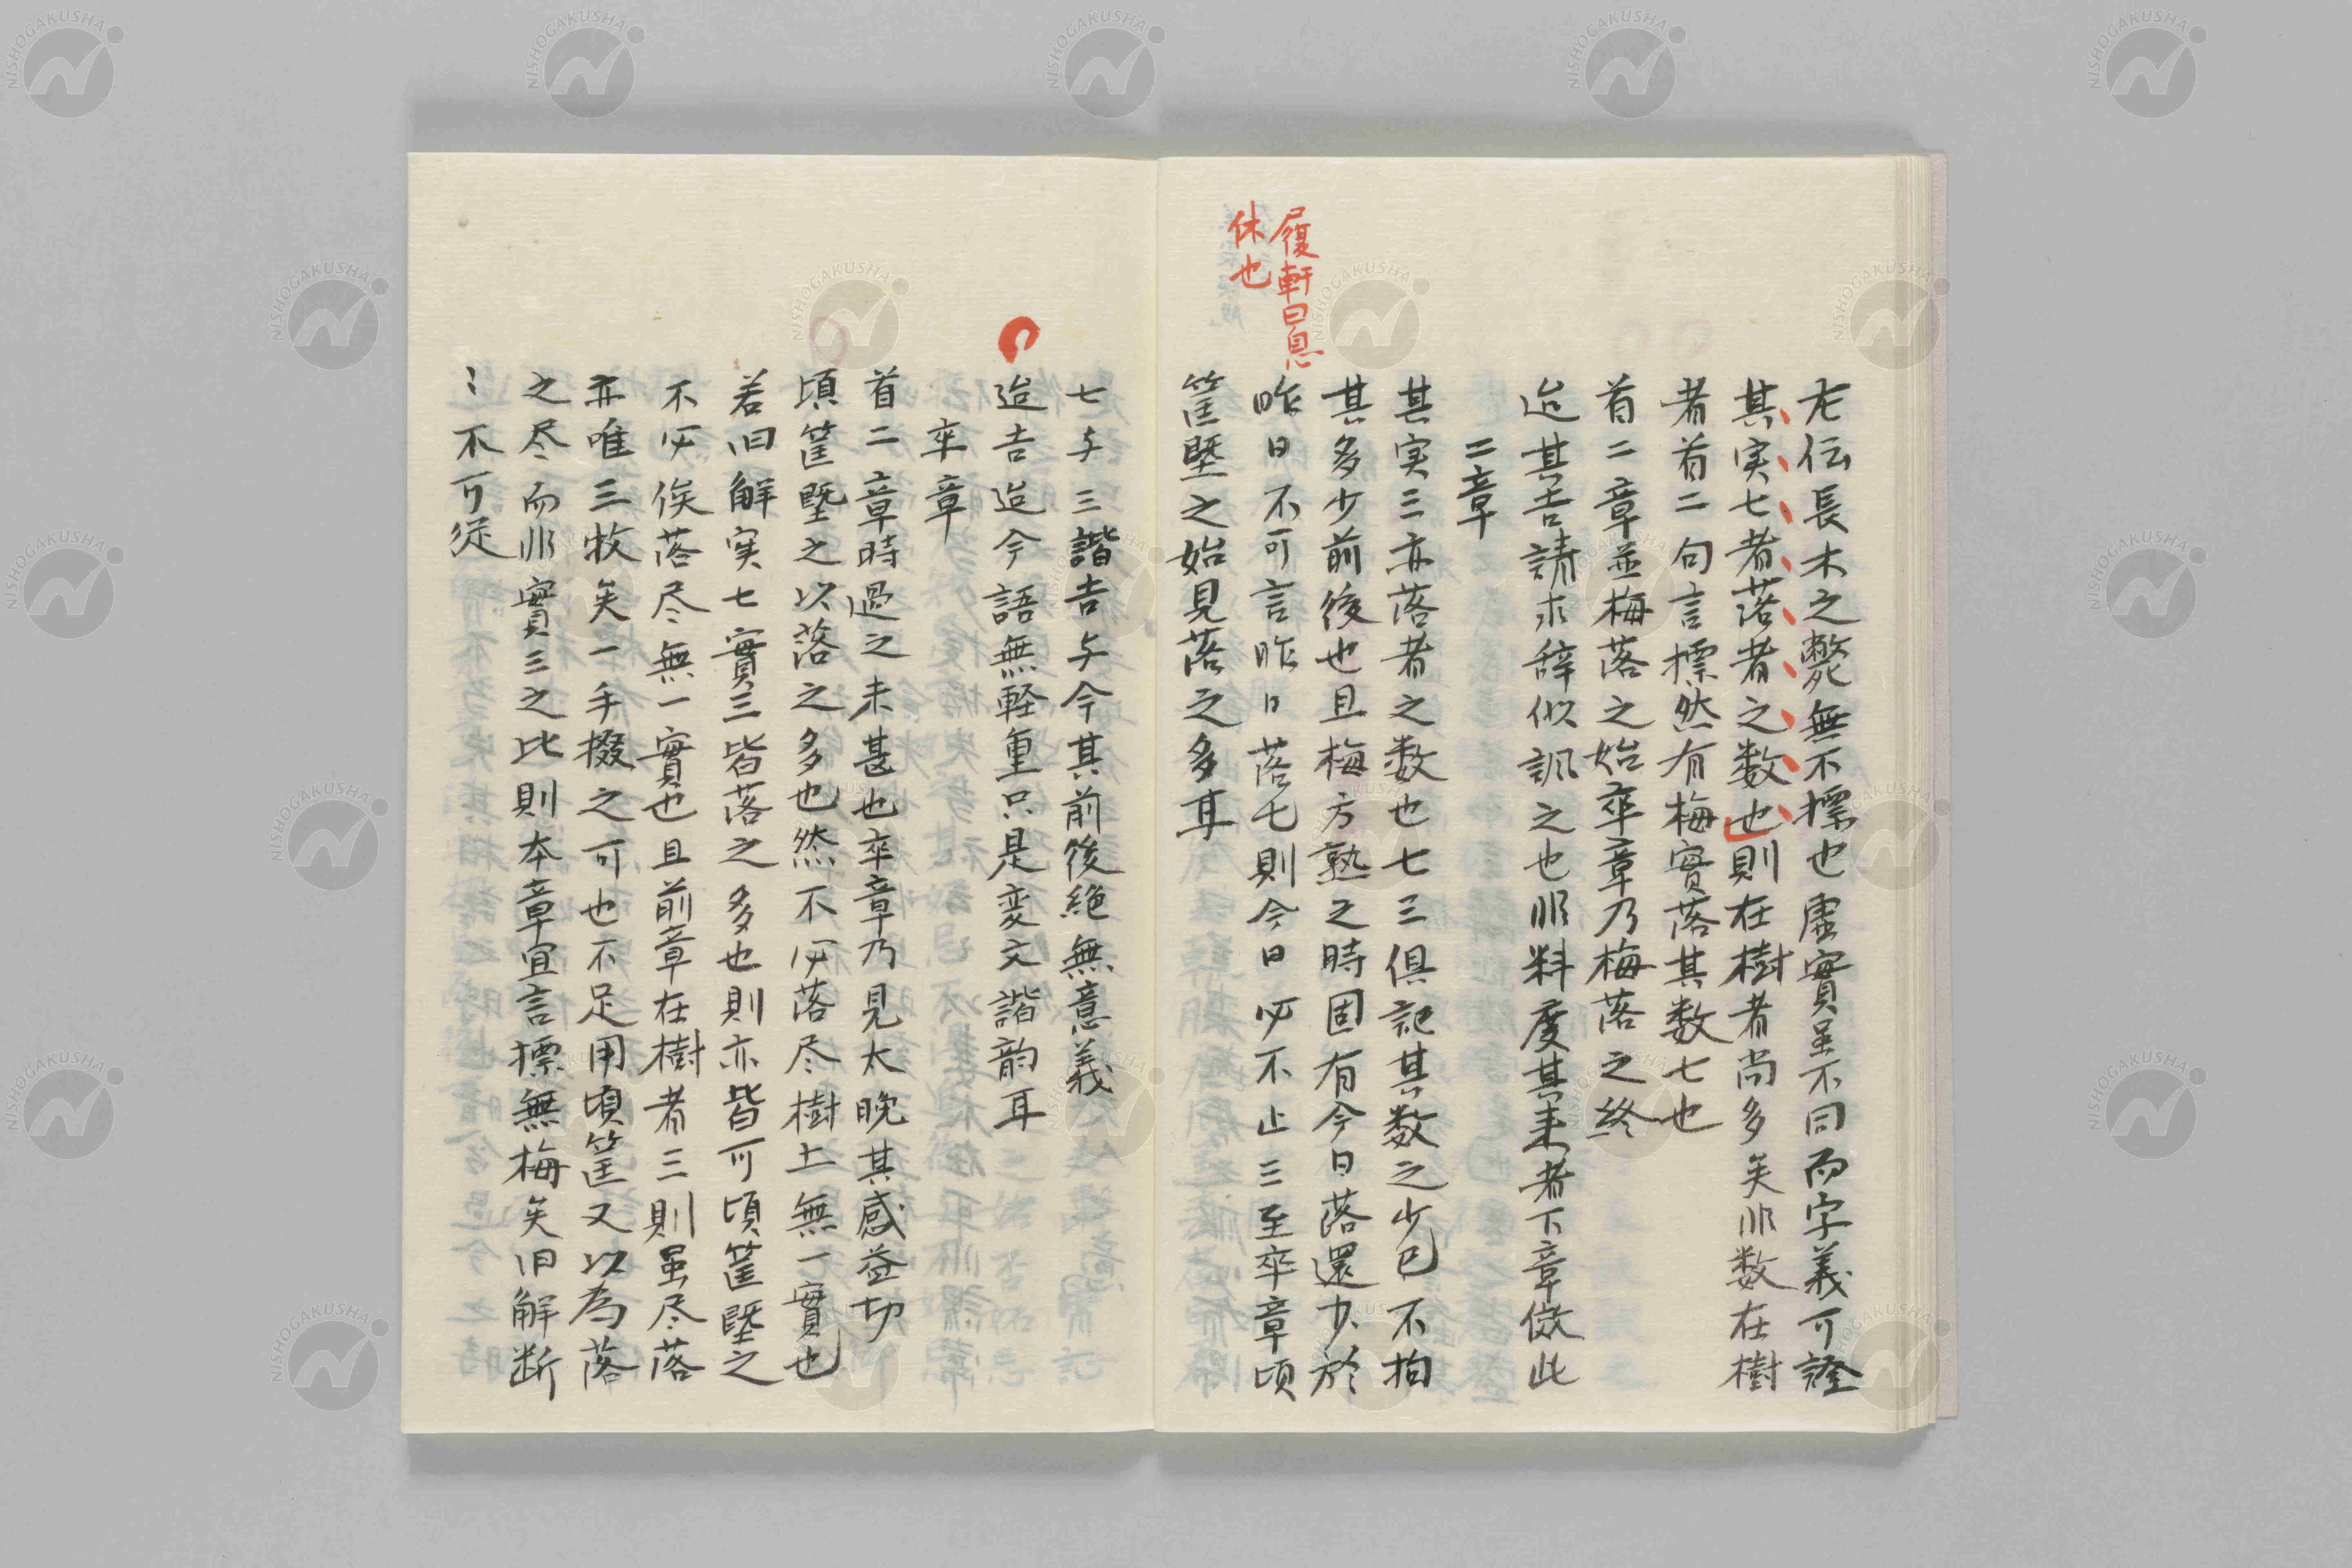 左伝長木之斃無不摽也虚實虽不同而字義可證
其実七者落者之数也則在樹者尚多矣非数在樹
者首二句言摽然有梅實落其数七也
首二章並梅落之始卒章乃梅落之終
迨其吉請求辞似訊之也非料度其来者下章倣此
二章
其実三亦落者之数也七三俱記其数之少已不拘
其多少前後也且梅方熟之時固有今日落還少於
昨日不可言昨日落七則今日必不止三至卒章頃
筐塈之始見落之多耳
履軒曰息
休也
七与三諧吉与今其前後絶無意義
迨吉迨今語無軽重只是変文諧韵耳
卒章
首二章時過之未甚也卒章乃見太晩其感益切
頃筐塈之以落之多也然不必落尽樹上無一實也
若旧解実七實三皆落之多也則亦皆可頃筐塈之
不必俟落尽無一實也且前章在樹者三則虽尽落
亦唯三枚矣一手掇之可也不足用頃筐又以為落
之尽而非實三之比則本章宜言摽無梅矣旧解断
〻不可従
NISHOGAKUSHA